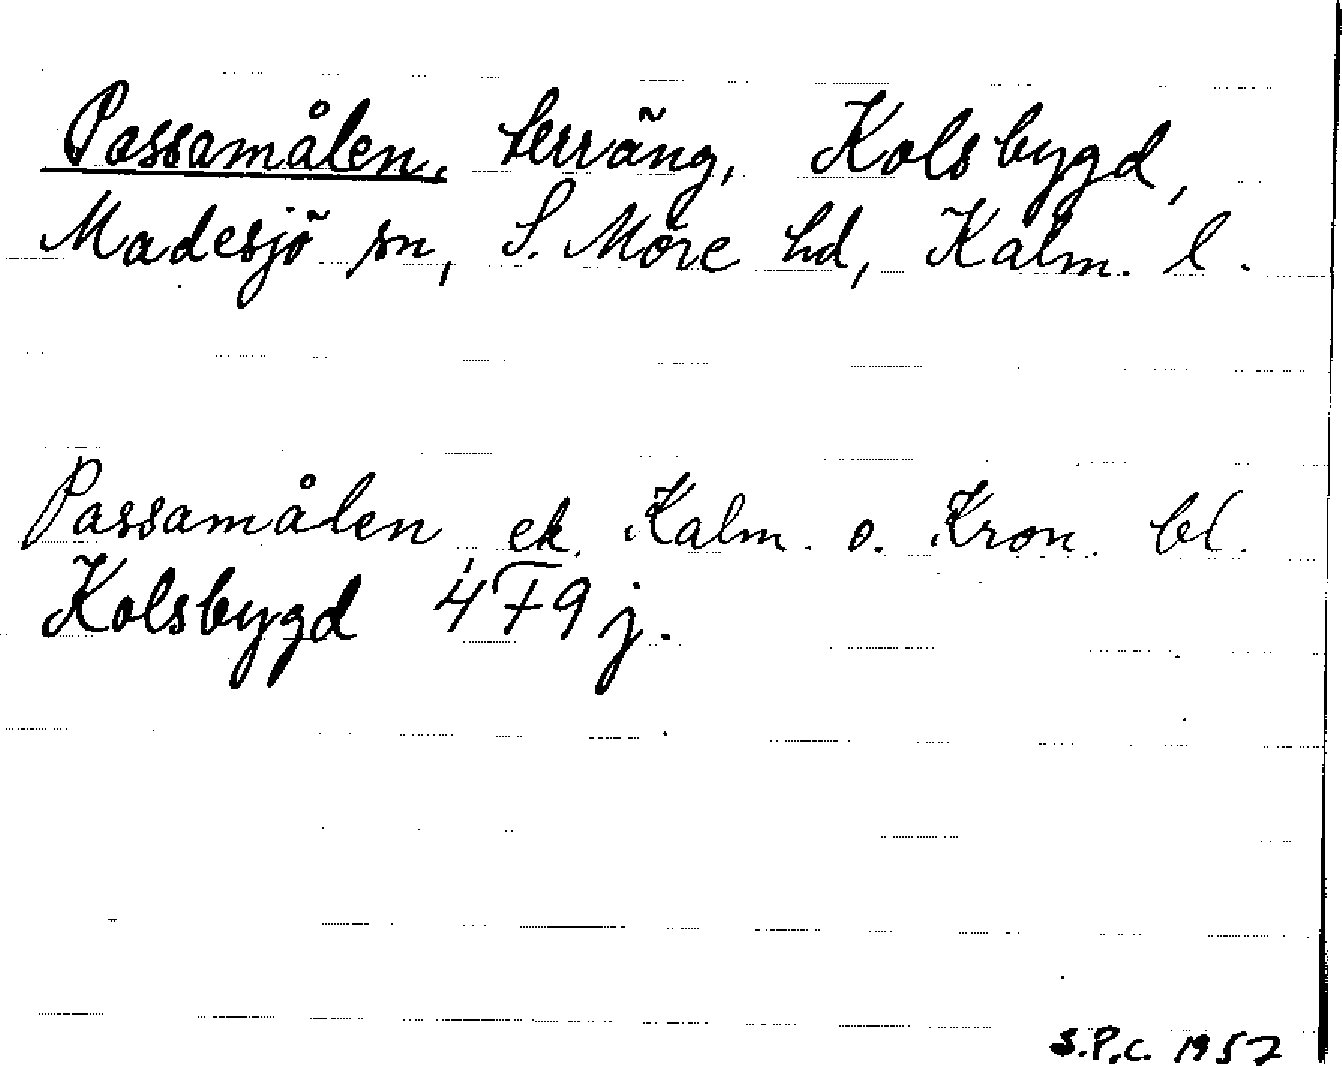 Passamålen, terräng, Kolsbygd,
Madesjö sn, S. Möre hd, Kalm. l.
Passamålen, ek. Kalm. o. Kron. bl.
Kolsbygd 4F9j.
S.P.C. 1957